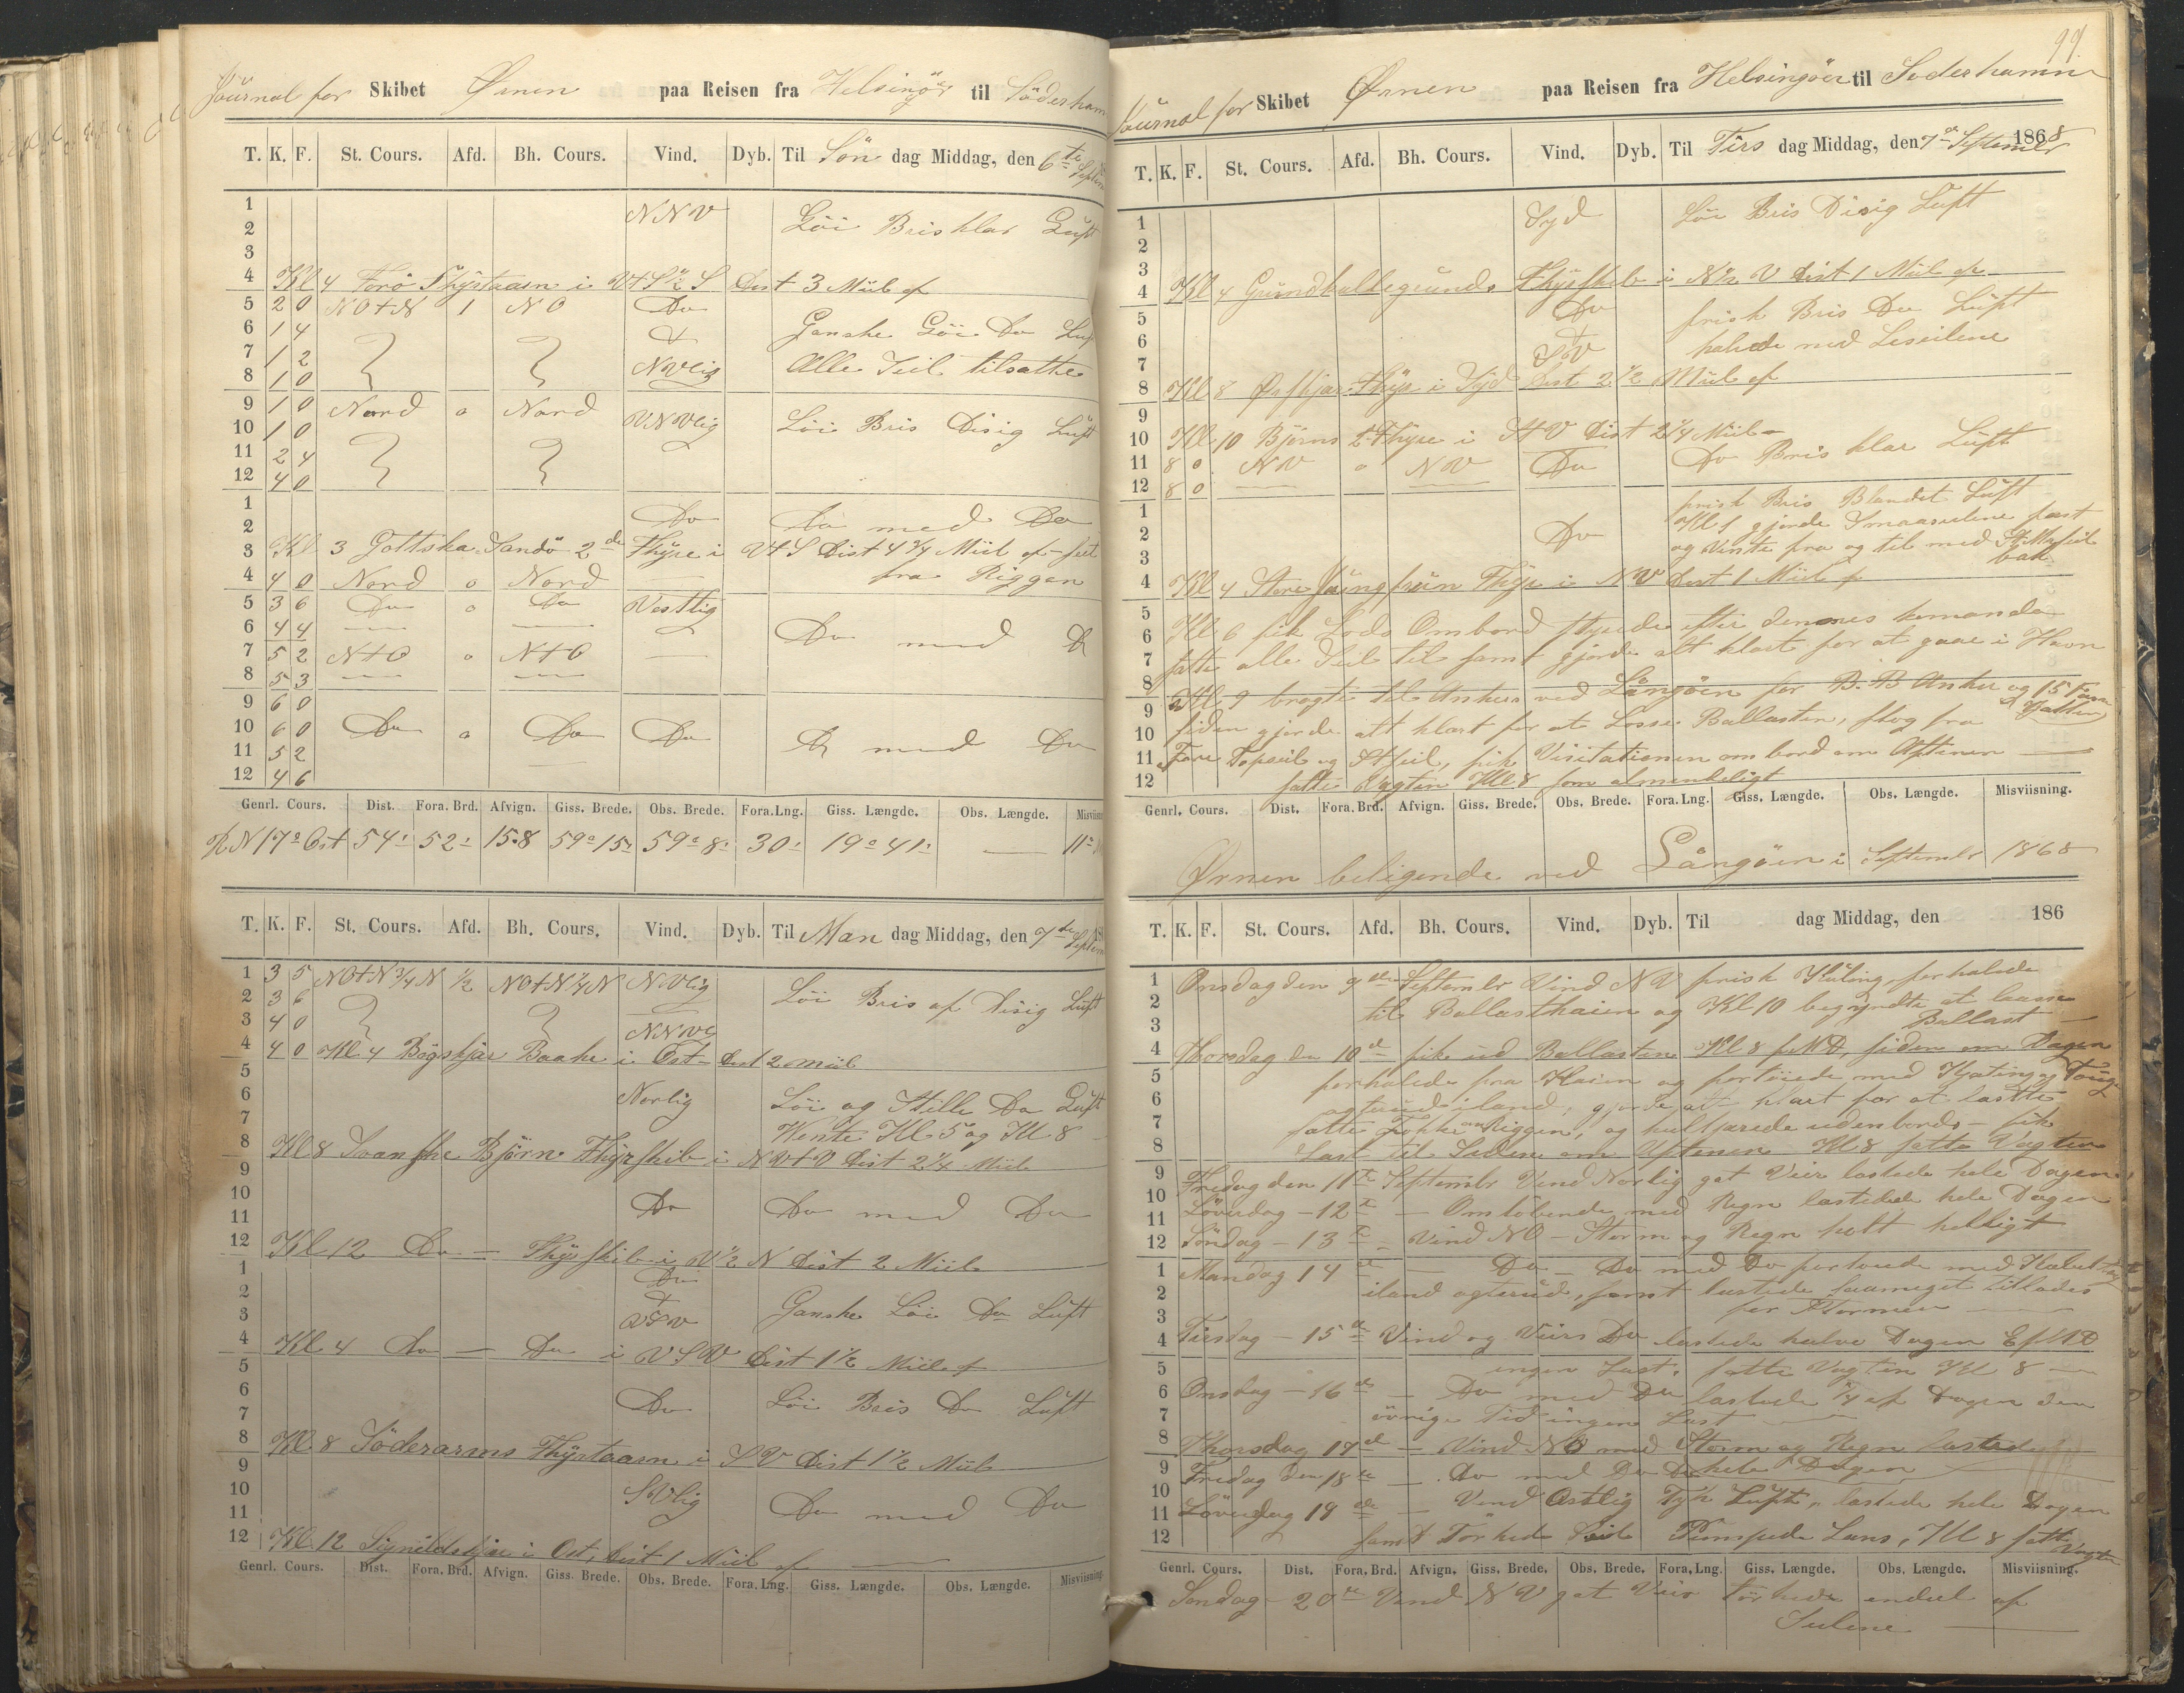 Journal for Skibet Ørnen paa Reisen fra Helsingör til Söderham
T. K. F. St. Cours. Afd. Bh. Cours. Vind. Dyb. Til Sön dag Middag, den 6te Septem
1 NNV Löi Bris klar Luft
2
3
4 Kl 4 Forö Fhystaarn i V+S ½ S Dist 3 Miil af
5 2 0 NO+N 1 NO Do
6 1 4 Ganske Löi Do Luf
7 1 2 NVlig Alle Seil tilsatte
8 1 0
9 1 0 Nord o Nord
10 1 0 VNVlig Löi Bris Disig Luft
11 2 4
12 4 0
1 Do Do med Do
2
3 Kl 3 Gottska Sandö 2de Fhyre i V+S Dist 4¾ Miil af
4 4 0 Nord o Nord fra Riggen
5 3 6 Do o Do Vestlig
6 4 4 Do med D
7 5 2 N+O o N+O
8 5 3
9 6 0
10 6 0 Do o Do Do D med Do
11 5 2
12 4 6
Genrl. Cours. Dist. Fora. Brd. Afvign. Giss. Brede. Obs. Brede. Fora. Lng. Giss. Længde. Obs. Længde. Misviisn
N 17° Ost 54' 52' 15.8 59° 15' 59° 8' 30' 19° 41' — 11°
T. K. F. St. Cours. Afd. Bh. Cours. Vind. Dyb. Til Man dag Middag, den 7de Septem
1 3 5 NO+N ¾ N ½ NO+N ¼ N NVlig
2 3 6 Löi Bris af Disig Luft
3 4 0 NNV
4 4 0 Kl 4 Bogskjær Baake i Ost Dist 2 Miil
5
6 Norlig Löi og Stille Do Luft
7 Wente Kl 5 og Kl 8
8 Kl 8 Svanske Björn Fhyrskib i NV+V Dist 2¼ Miil
9
10 Do Do med Do
11
12 Kl 12 Do — Fhyrskib i V ½ N Dist 2 Miil
1 Do
2
3 VSV Ganske Löi Do Luft
4 Kl 4 Do — Do i VSV Dist 1½ Miil af
5
6 Do Löi Bris Do Luft
7
8 Kl 8 Söderarms Fhyrtaarn i SV Dist 1½ Miil
9
10 SVlig Do med Do
11
12 Kl 12 Signildskjær i Ost, Dist 1 Miil af
Genrl. Cours. Dist. Fora. Brd. Afvign. Giss. Brede. Obs. Brede. Fora. Lng. Giss. Længde. Obs. Længde. Misviisning.
99
Journal for Skibet Ørnen paa Reisen fra Helsingöer til Soderhamn
T. K. F. St. Cours. Afd. Bh. Cours. Vind. Dyb. Til Tirs dag Middag, den 7de September 1868
1 Syd Löi Bris Disig Luft
2
3
4 Kl 4 Grundkallegrunds Fhyrskib i N ½ V Dist 1 Miil af
5 Do frisk Bris Do Luft
6 halede ned Leseilene
7 SV
8 Kl 8 Ørskjær Fhyr i Syd Dist 2½ Miil af
9
10 Kl 10 Björns Fhyre i StV Dist 2¼ Miil
11 8 0 NV o NV Do Do Bris klar Luft
12 8 0
1 frisk Bris Blandet Luft
2 Do Kl 1 gjorde Smaaseilene fast
3 og Vente fra og til med
bak
4 Kl 4 Store Jungfruen Fhyr i NV Dist 1 Miil af
5
6 Kl 6 fik Lods Ombord styrede efter dennes komando
7 satte alle Seil til samt gjorde alt klart for at gaae i Havn
8
9 Kl 9 bragte til Ankers ved Långöen for B.B Anker og 15 Favn
10 siden gjorde alt klart for at Losse Ballasten, slog fra
11 Fore Topseil og Stseil, fik Visitationen ombord om Aftenen
12 satte Vagten Kl 8 som almindeligt
Genrl. Cours. Dist. Fora. Brd. Afvign. Giss. Brede. Obs. Brede. Fora. Lng. Giss. Længde. Obs. Længde. Misviisning.
Ørnen beligende ved Långöen i September 1868
T. K. F. St. Cours. Afd. Bh. Cours. Vind. Dyb. Til dag Middag, den 186
1 Onsdag den 9de September Vind NV frisk Kuling, forhalede
2 til Ballasthaien og Kl 10 begyndte at losse
3 Ballast
4 Thorsdag den 10de fik ud Ballasten Kl 8 f.MD, siden om Dagen
5 forhalede fra Haien og fortöiede med Kjæting og Toug
6 agterud iland, gjorde alt klart for at lastte
7 satte Fokke Riggen, og udenbords fik
8 Last til Siden om Aftenen Kl 8 satte Vagten
9 Fredag den 11te September Vind Norlig got Veir lastede hele Dagen
10 Löverdag — 12te — Omlöbende med Regn lastede hele Dagen
11
12 Söndag — 13te — Vind NO — Storm og Regn holt helligt
1 Mandag 14de — Do — Do med Do fortöiede med Kabeltoug
2 iland agterud, samt lastede saameget tillodes
3 for Stormen
4 Tirsdag — 15de Vind og Veirs Do lastede halve Dagen Ef MD
5 ingen Last, satte Vagten Kl 8
6 Onsdag — 16de — Do med Do lastede ¼ af Dagen den
7 övrige Tid ingen Last
8 Thorsdag 17de — Vind NO med Storm og Regn lastede
9 Fredag den 18de — Do med Do Do hele Dagen
10
11 Löverdag 19de — Vind Östlig Tyk Luft, lastede hele Dagen
12 samt Törkede Seil Pumpede Lens, Kl 8 satte Vagten
Genrl. Cours. Dist. Fora. Brd. Afvign. Giss. Brede. Obs. Brede. Fora. Lng. Giss. Længde. Obs. Længde. Misviisning.
Söndag 20de Vind NV got Veir Törkede endeel af
Seilene